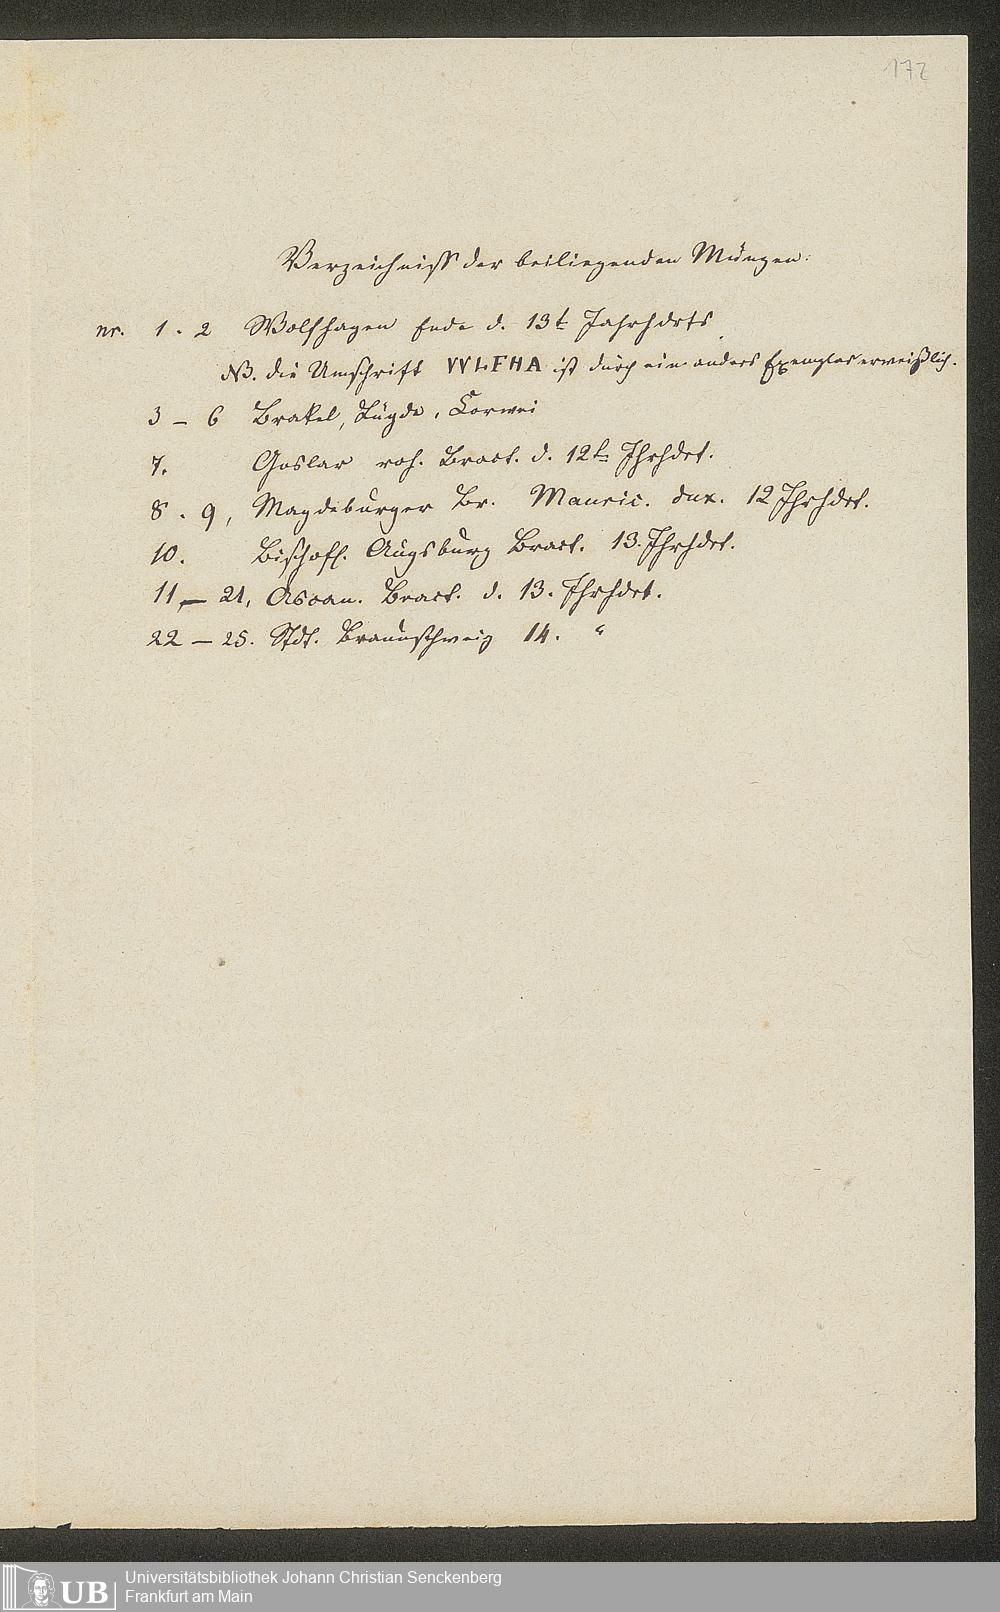 172
Verzeichniss der beiliegenden Münzen:
nr. 1. 2 Wolfhagen Ende d. 13t Jahrhdrts
NB. die Umschrift VVLFHA ist durch ein anders Exemplar erweißlich.
3 – 6 Brakel, Lügde, Corvei
7. Goslar roh. Bract. d. 12t Jhrhdrt.
8. 9, Magdeburger Br. Mauric. dux. 12 Jhrhdrt.
10. Bischöfl. Augsburg Bract. 13. Jhrhdrt.
11, – 21, Ascan. Bract. d. 13. Jhrhdrt.
22 – 25. Stdt. Braunschweig 14. "
UB Universitätsbibliothek Johann Christian Senckenberg
Frankfurt am Main